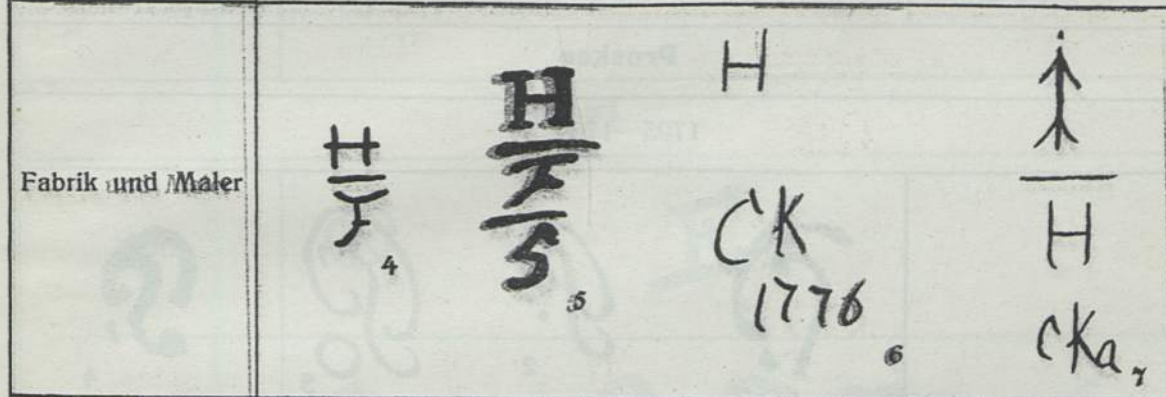 Fabrik und Maler
H
4
H
F
5
5
H
CK
1776
6
H
CKa.
7